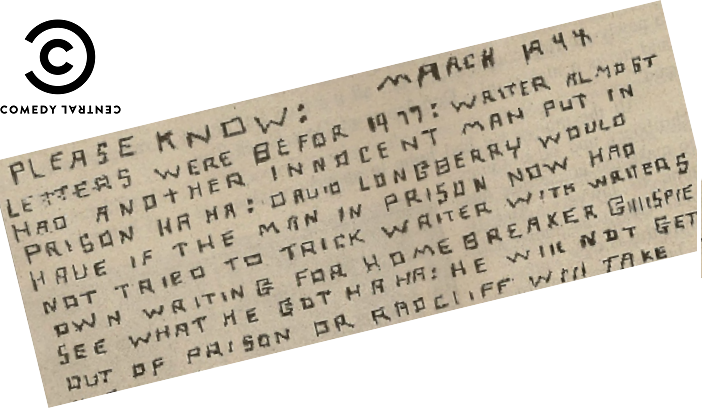 COMEDY CENTRAL
MARCH 1944
PLEASE KNOW:
LETTERS WERE BEFOR 1977: WRITER ALMOST
HAD ANOTHER INNOCENT MAN PUT IN
PRISON HA HA: DAVID LONGBERRY WOULD
HAVE IF THE MAN IN PRISON NOW HAD
NOT TRIED TO TRICK WRITER WITH WRITERS
OWN WRITING FOR HOMEBREAKER GHILISPIE
SEE WHAT HE GOT HA HA: HE WILL NOT GET
OUT OF PRISON OR RADCLIFF WILL TAKE